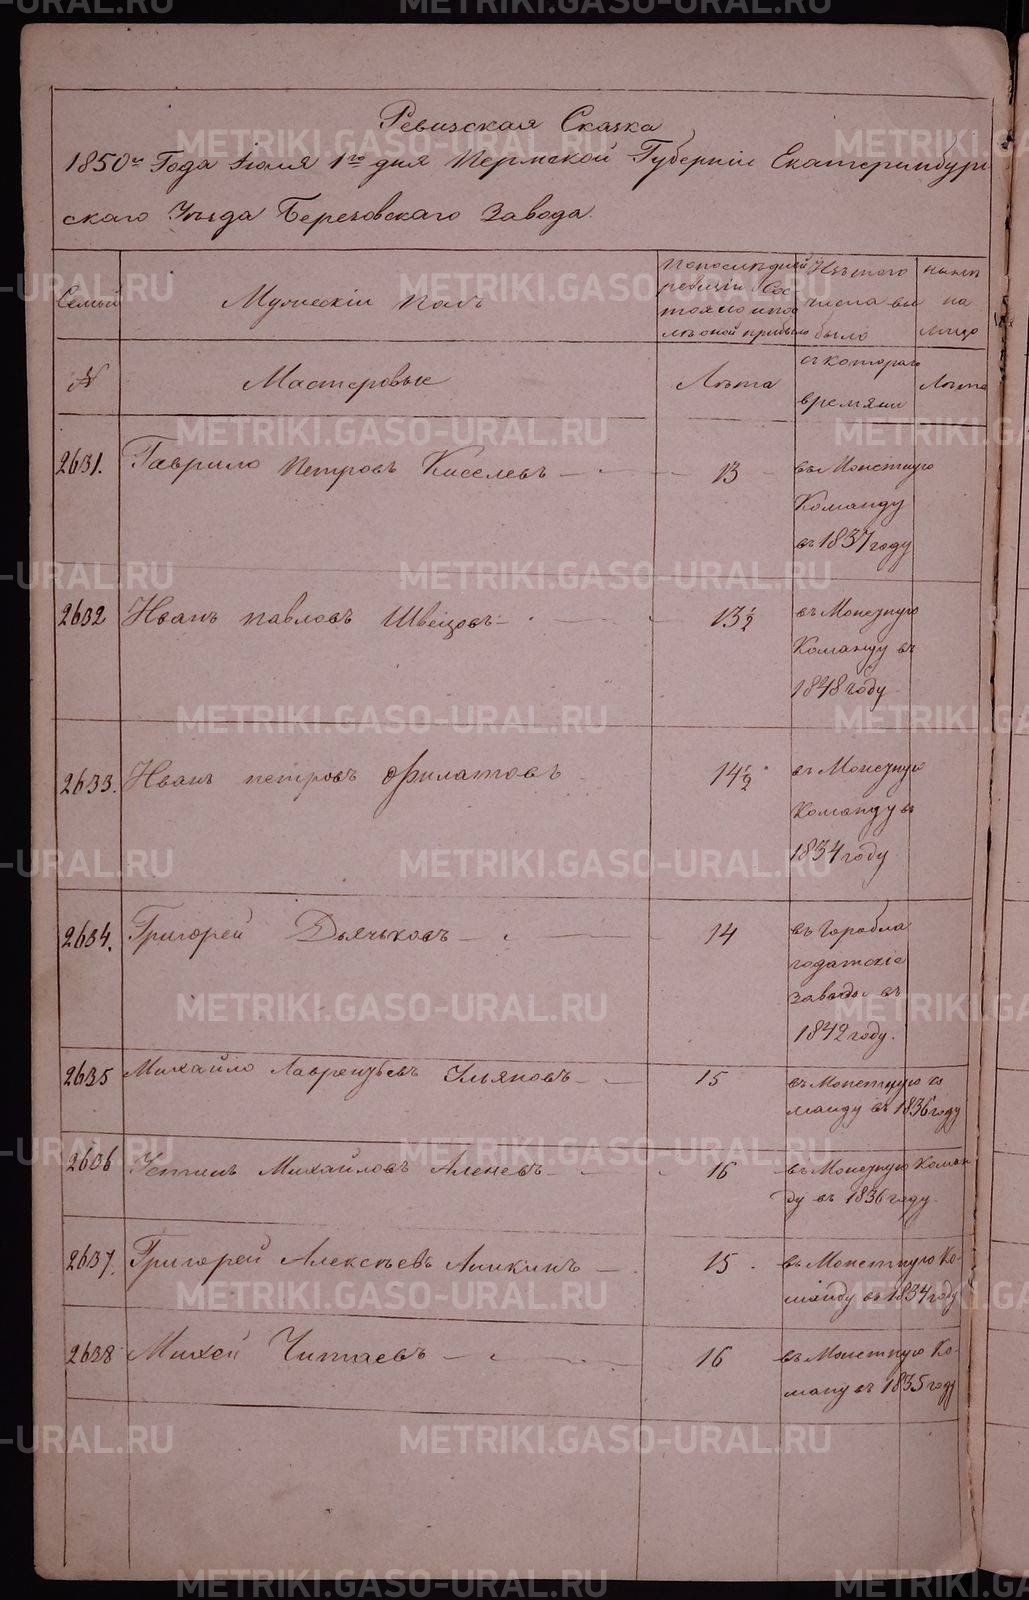 Ревизская Сказка
1850го Года Іюля 1го дня Пермской Губерніи Екатеринбург
скаго Уѣзда Березовскаго Завода.
Семьи
Мужескій Полъ
По последней
ревизіи Сос
тояло и по
слѣ оной прибыло
Изъ того
числа вы
было
нынѣ
на
лицо
№
Мастеровые
Лѣта
съ котораго
времяни
Лѣта
2631. Гаврило Петровъ Киселевъ 13 въ Монетную
Команду
въ 1837 году
2632 Иванъ Павловъ Швецовъ 13 1/2 въ Монетную
Команду въ
1848 году
2633. Иванъ Петровъ Филатовъ 14 1/2 въ Монетную
Команду въ
1834 году
2634. Григорей Дьячьковъ 14 въ Горобла
годатскіе
заводы въ
1842 году.
2635 Михайло Лаврентьевъ Ульяновъ 15 въ Монетную ко
манду въ 1836 году
2636 Устинъ Михайловъ Аленевъ 16 въ Монетную Коман
ду въ 1836 году
2637. Григорей Алексѣевъ Аникинъ 15 въ Монетную Ко-
манду въ 1834 году
2638 Михей Читаевъ 16 въ Монетную Ко-
ману въ 1835 году
METRIKI.GASO-URAL.RU